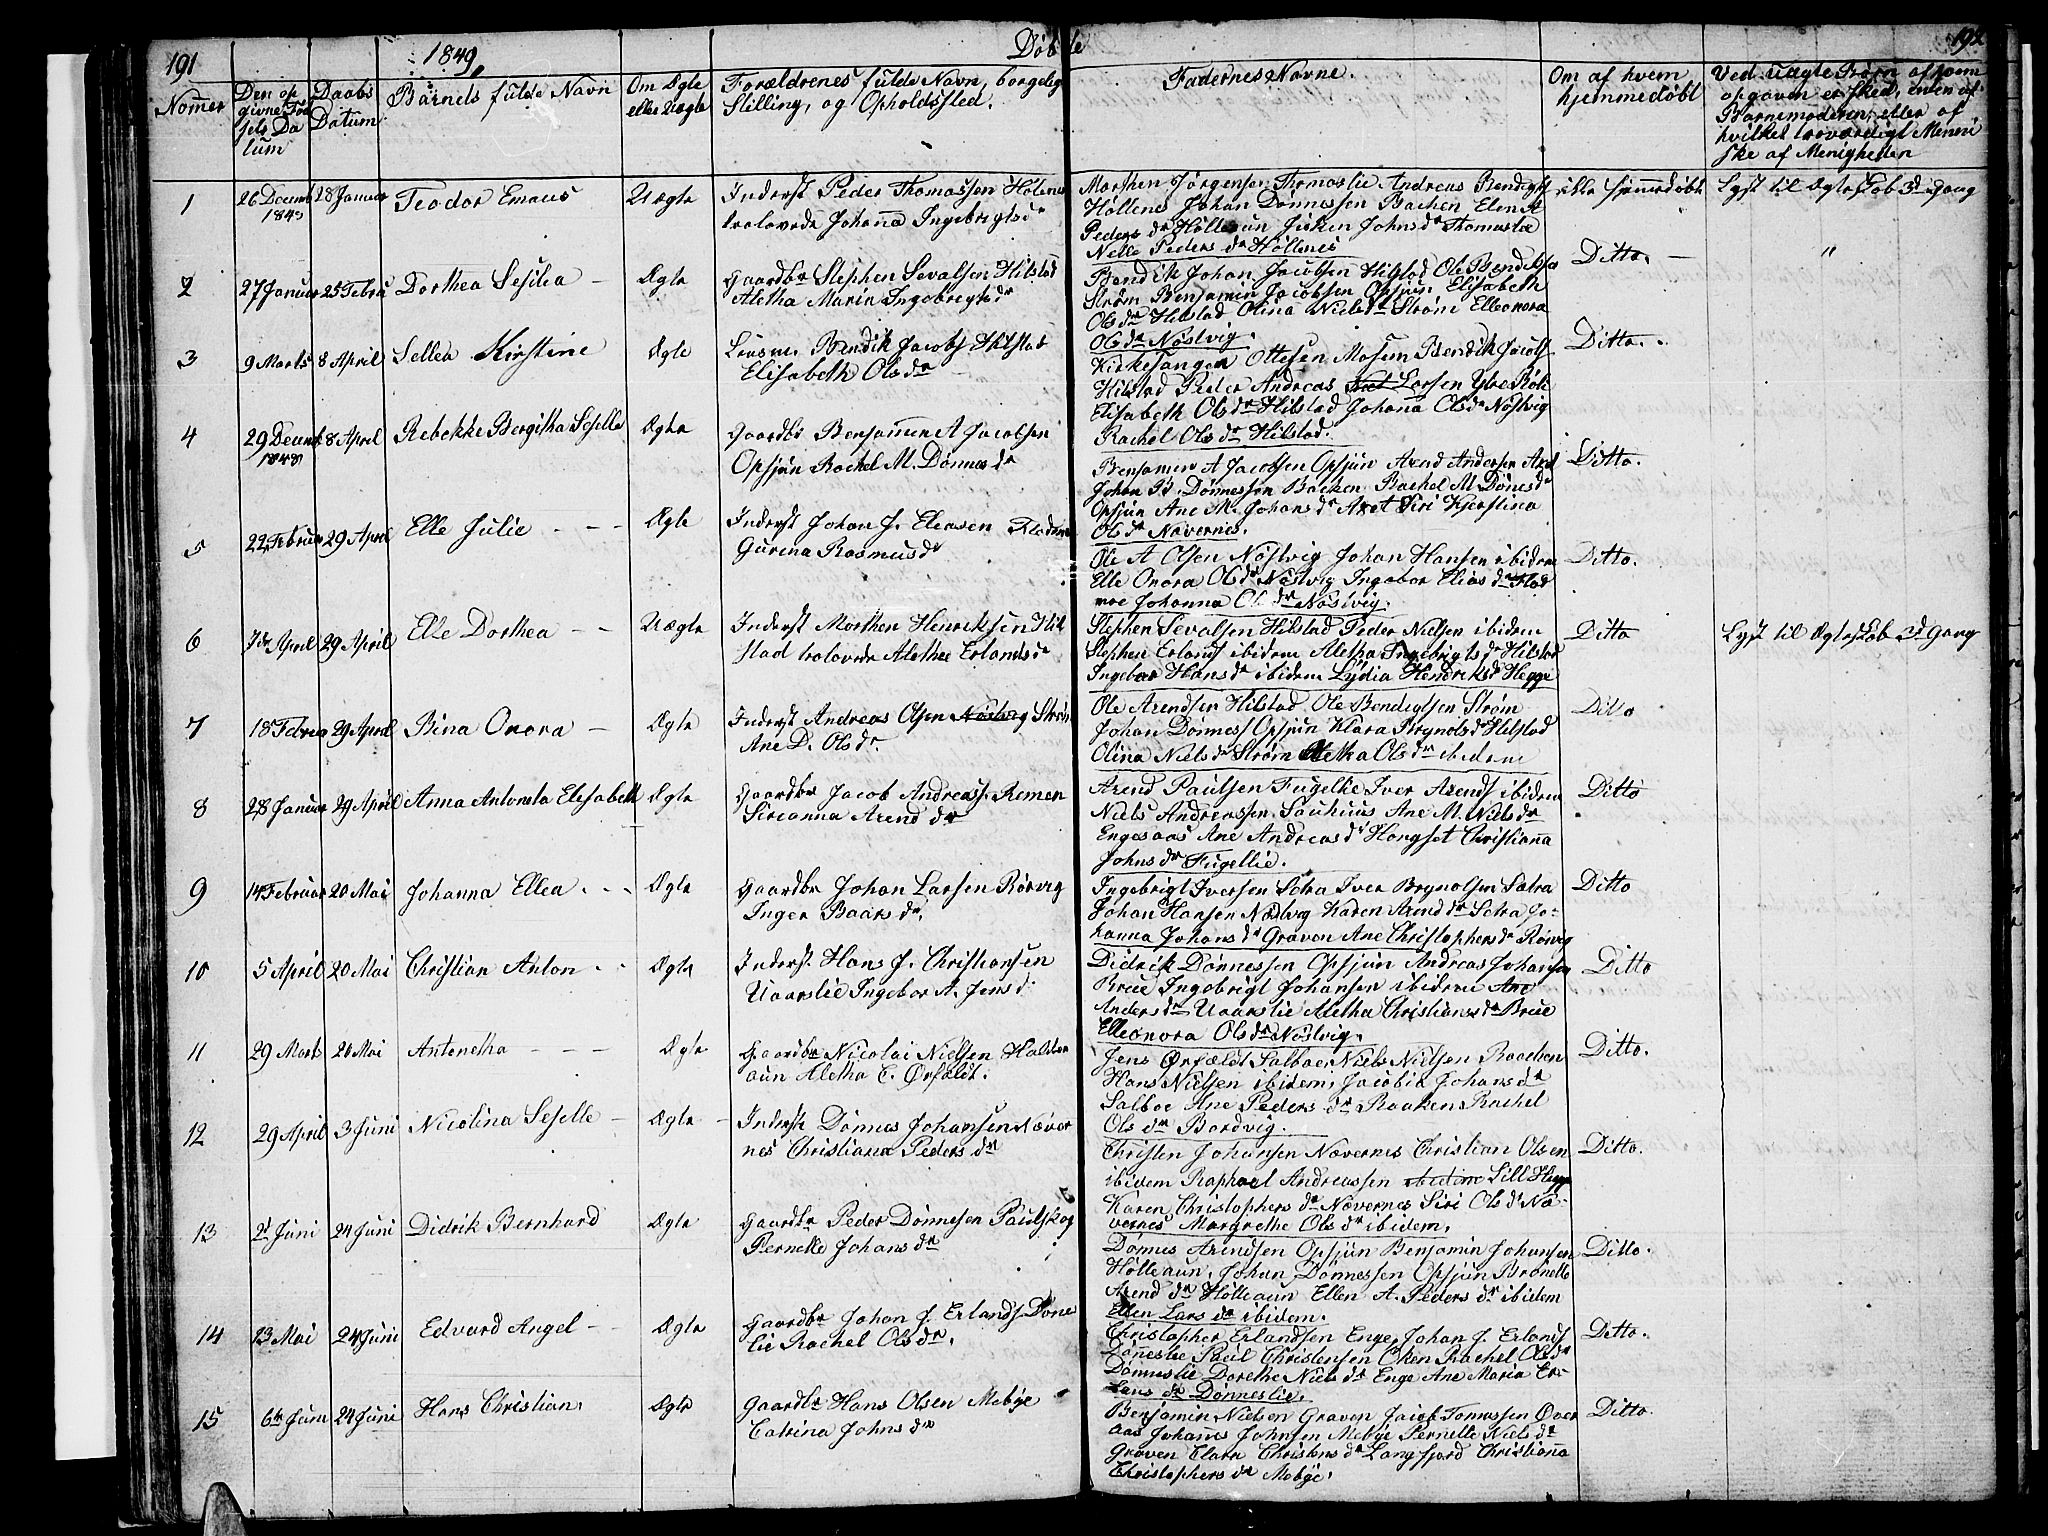 191
1849,
Døbte
192
Nomer
Den op
givne Fød
sels Da
tum
Daabs
Datum
Barnets fulde Navn
Om Ægte
eller Uægte
Forældrenes fulde Navn, borgelig
Stilling, og Opholdssted.
Faderness Navne.
Om af hvem
hjemmedøbt
Ved uægte Børn af hvem
opgaven er skeed, enten af
Barnemoderen, eller af
hvilket troværdigt Menni
ske af Menigheden
1
26 Decemb
28 Januar
Teodor Emaus
Uægte
Inderst Peder Thomassen Hølenes
trolovede Johana Ingebrigtsdr
Morthen Jørgensen Thomaslie Andreas Bendigts
Høllenes Johan Dønnessen Bachen Elen A
Peders dr Hølleaun Johns dr Thomaslie
Nelle Peders dr Høllenes
ikke hjemmedøbt
Lyst til Ægteskab 3d Gang
2
27 Januar
25 Febru
Dorthea Sesilia
Ægte
Gaardbr Stephen Sevalsen Hilstad
Aletha Marin Ingebrigtsdr
Bendik Johan Jacobsen Hilstad Ole Bendiksen
Strøm Benjamin Jacobsen Opsjøn Elisabeth
Olsdr Hilstad Olina Nielsdr Strøm Elleonora
Olsdr Nøstvig.
Ditto.
"
3
9 Marts
8 April
Sellea Kirstine
Ægte
Bendik Jacobs Hilstad
Elisabeth Olsdr
Kirkesanger Ottesen Mosum Bendik Jacobs
Hilstad Peder Andreas Larsen Ytre
Elisabeth Olsdr Hilstad Johana Olsdr Nøstvig
Rachel Ols dr Hilstad.
Ditto.
4
29 Decemb
1848
8 April
Rebekke Bergitha Seselle
Ægte
Gaardbr Benjamin A Jacobsen
Opsjøn Rachel M. Dønnes dr
Benjamin A Jacobsen Opsjøn Arend Andersen
Johan Dønnessen Backen Rachel M Dønes dr
Opsjøn Ane M. Johans dr Siri Kjerstina
Ols dr Nævernes.
Ditto.
5
22 Februar
29 April
Elle Julie
Ægte
Inderst Johan J. Eliasen
Gurina Rasmusdr
Ole A Olsen Nøstvig Johan Hansen ibidem
Elle Onora Olsdr Nøstvig Ingebor Elias dr Flad
moe Johanna Ols dr Nøstvig.
Ditto.
6
April
29 April
Elle Dorthea
Uægte
Inderst Morthen Henriksen Hil
stad trolovede Alethe Erlandsdr
Stephen Sevalsen Hilstad Peder Nielsen ibidem
Stephen Erlands ibidem Aletha Ingebrigts dr Hilstad
Ingebor Hans dr ibidem Lydia Hendriksdr Hegge
Ditto
Lyst til Ægteskab 3d Gang
7
18 Februa
29 April
Bina Onora
Ægte
Inderst Andreas Olsen Nøstvig Strøm
Ane D. Olsdr.
Ole Arendsen Hilstad Ole Bendigtsen Strøm
Johan Dønness Opsjøn Klara Brynolsdr Hilstad
Olina Niels dr Strøm Aletha Ols dr ibidem
Ditto
8
28 Januar
29 April
Anna Antoneta Elisabeth
Ægte
Gaardbr Jacob Andreass. Remen
Sirianna Arend dr
Arend Paulsen Fugelkie Iver Arends ibidem
Niels Andreassen Sauhuus Ane M. Niels dr
Engesaas Ane Andreas dr Hongset Christiana
Johns dr Fugellie.
Ditto
9
14 Februar
20 Mai
Johanna Ellea
Ægte
Gaardbr Johan Larsen Rørvig
Inger Baars dr.
Ingebrigt Iversen Setra Iver Brynolsen Sætra
Johan Hansen Nøstvig Karen Arend dr Setra Jo-
hanna Johans dr Graven Ane Christophers dr Rørvig
Ditto
10
5 April
20 Mai
Christian Anton
Ægte
Inderst. Hans J. Christiansen
Uaarslie Ingebor A. Jens d.
Didrik Dønnessen Opsjøn Andreas Johansen
Brue Ingebrigt Johansen ibidem Ane
Anders dr Uaarslie Aletha Christians dr Brue
Elleonora Ols dr Nøstvig.
Ditto
11
29 Mart
20 Mai
Antenetha
Ægte
Gaardbr Nicolai Nielsen Haltø
aun Aletha C. Ørfældt.
Jens Ørfældt Salboe Niels Nielsen Raaeken
Hans Nielsen ibidem, Jacobia Johans dr
Salboe Ane Peders dr Raaken Rachel
Ols dr Bordvig.
Ditto.
12
29 April
3 Juni
Nicolina Seselle
Ægte
Inderst Dønnes Johansen Næver
nes Christiana Peders dr
Christen Johansen Nævernes Christian Olsen
ibidem Raphael Andreassen Hegge
Karen Christophers dr Nævernes Siri Ols dr Næ-
vernes Margrethe Ols dr ibidem.
Ditto.
13
2d Juni
24 Juni
Didrik Bernhard
Ægte
Gaardbr Peder Dønnesen Paulskog
Pernelle Johans dr
Dønnes Arendsen Opsjøn Benjamin Johansen
Hølleaun, Johan Dønnessen Opsjøn Brønelle
Arend dr Hølleaun Ellen A. Peders dr ibidem
Ellen Lars dr ibidem.
Ditto.
14
13 Mai
24 Juni
Edvard Angel
Ægte
Gaardbr Johan J. Erlands. Døne
lie Rachel Olsdr.
Christopher Erlandsen Enge, Johan J. Erlands
Dønneslie Paul Christensen Oken Rachel Olsdr
Dønneslie Dorethe Niels dr Enge Ane Maria Er-
lans dr Dønneslie.
Ditto.
15
6te Juni
24 Juni
Hans Christian
Ægte
Gaardbr Hans Olsen Mebye
Catrina Johns dr
Benjamin Nielsen Graven Jacob Tomassen Over
aas Johanes Johnsen Mebye Pernelle Niels dr
Graven Clara Christens dr Langfjord Christianna
Christophers dr Mebye.
Ditto.